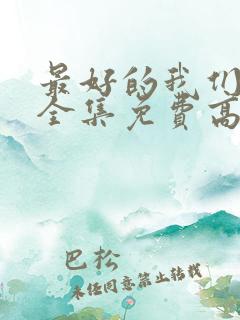 最好的我们
全集免费高
巴松
未经同意禁止转载